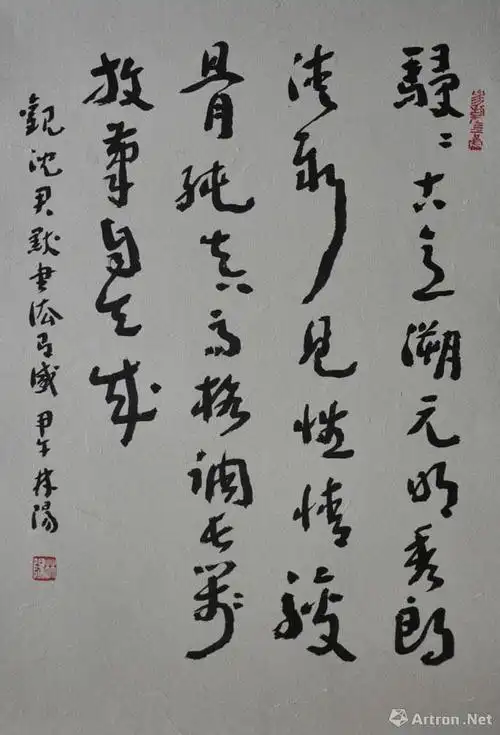 駸〻古意溯元明秀朗
清新見性情駿
骨純真高格調長箋
放筆自天成
觀沈尹默書法有感 甲午 林陽
Artron.Net